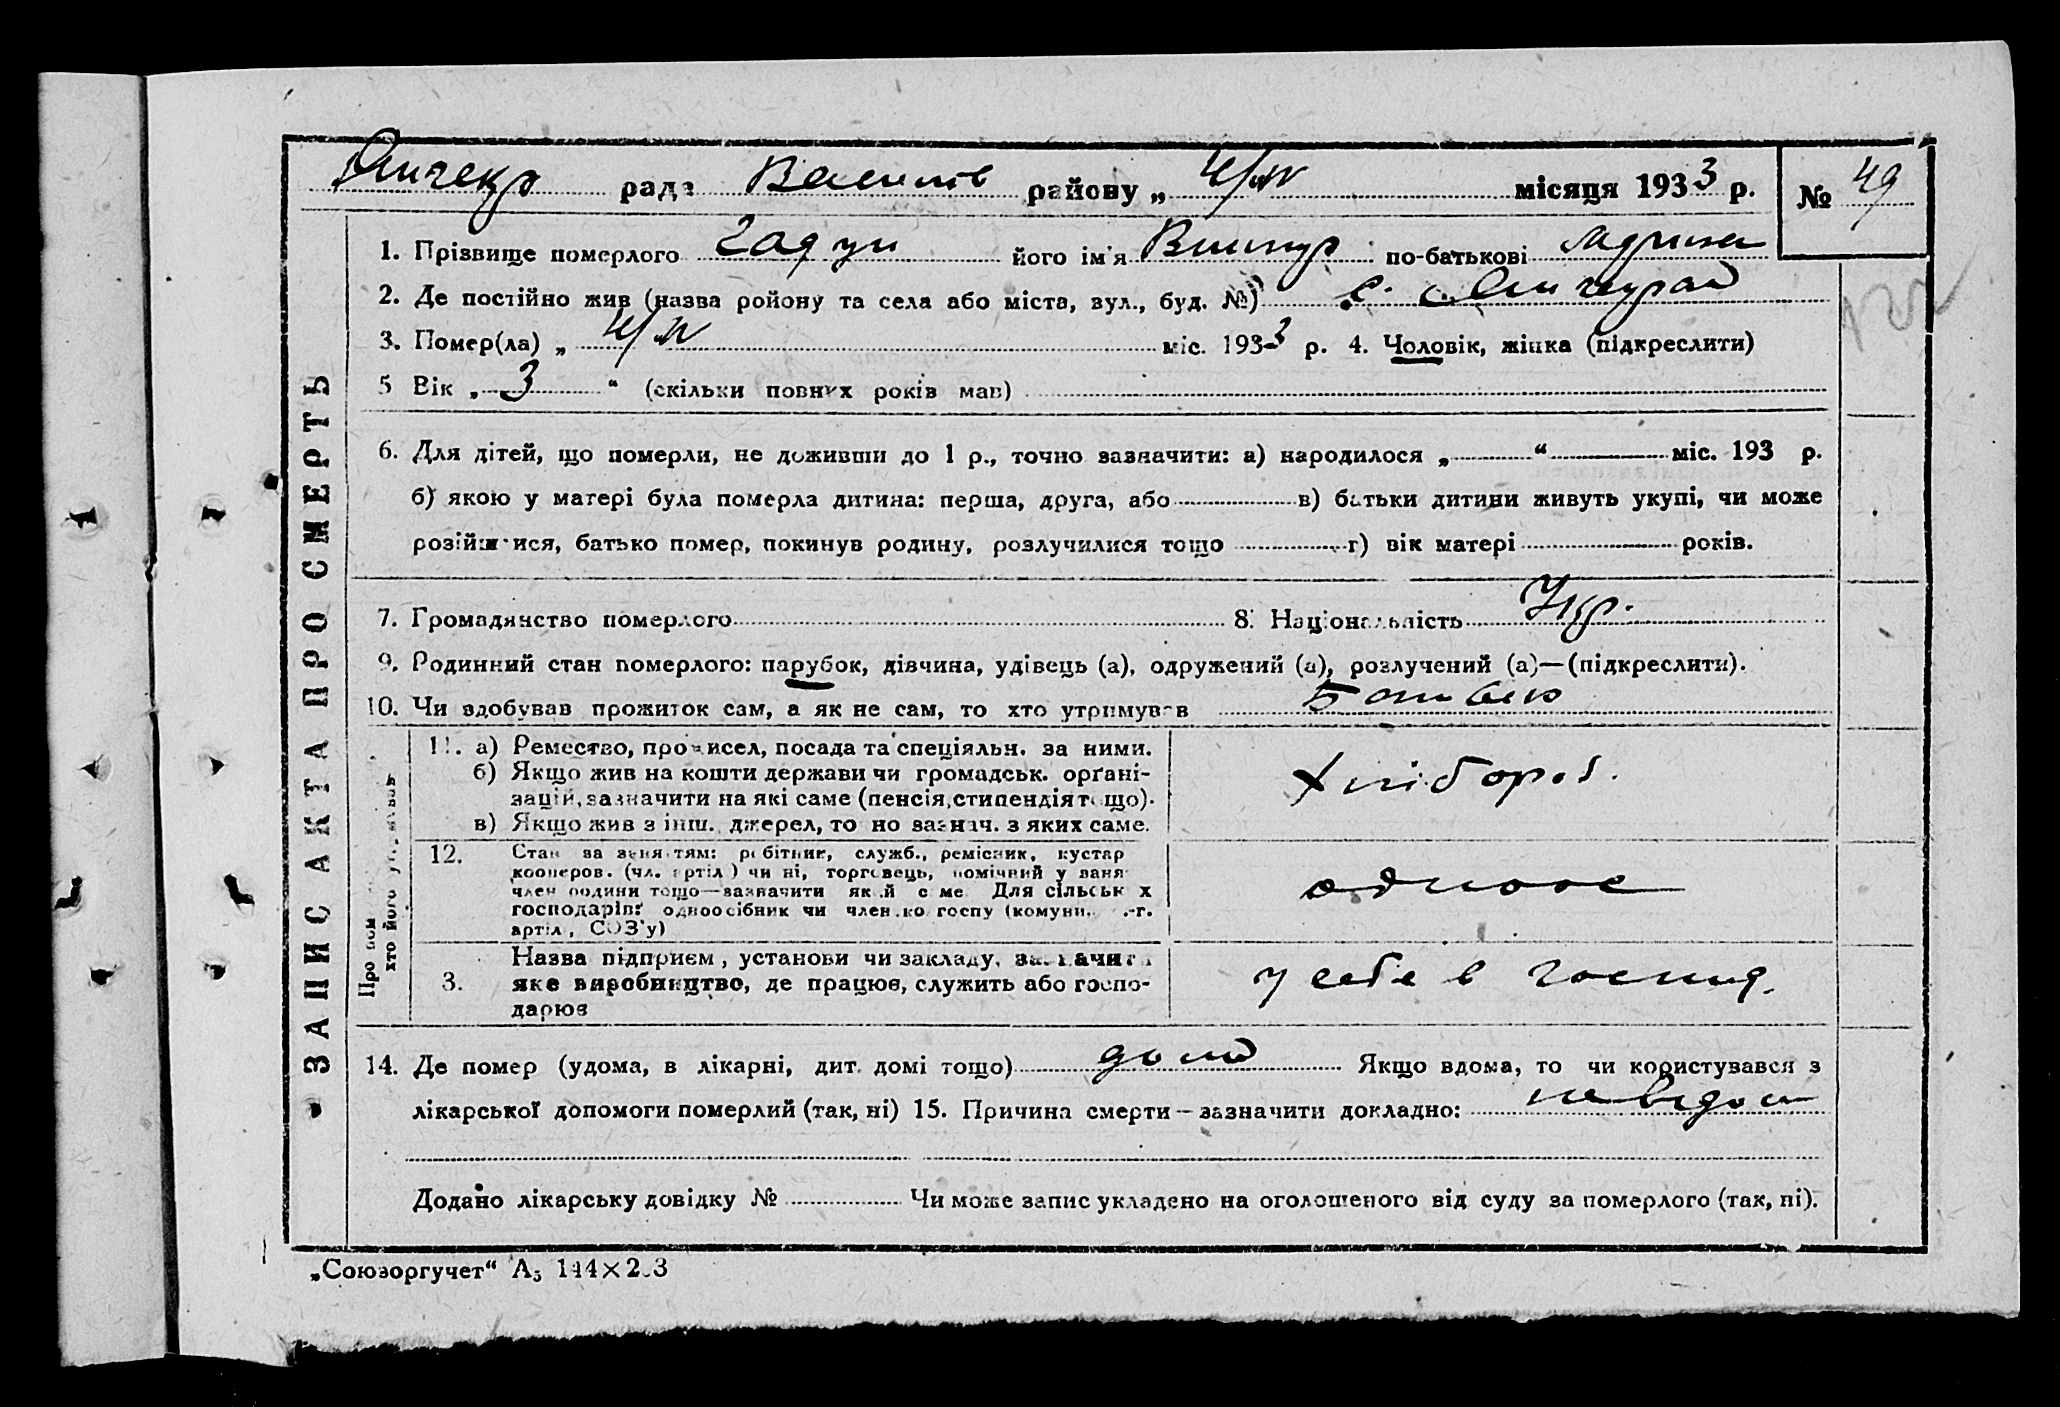 рада районe „ 4/ місяця 1933 р. № 49
1. Прізвище померлого його ім'я по-батькові
2. Де постійно жив (назва ройону та села або міста, вул., буд. №) с.
3. Помер(ла) „ 4/ міс. 1933 р. 4. Чоловік, жінка (підкреслити)
5 Вік „ 3 “ (скільки повних років мав)
6. Для дітей, що померли, не доживши до 1 р., точно зазначити: а) народилося „ “ міс. 193 р.
б) якою у матері була померла дитина: перша, друга, або в) батьки дитини живуть укупі, чи може
розійшлися, батько помер, покинув родину, розлучилися тощо г) вік матері років.
7. Громадянство померлого 8. Національність Укр.
9. Родинний стан померлого: парубок, дівчина, удівець (а), одружений (а), розлучений (а)—(підкреслити).
10. Чи здобував прожиток сам, а як не сам, то хто утримував Батько
11. а) Ремество, промисел, посада та спеціяльн. за ними.
б) Якщо жив на кошти держави чи громадськ. орґані-
зацій, зазначити на які саме (пенсія, стипендія тощо).
в) Якщо жив з інш. джерел, то но зазнач. з яких саме.
Хлібороб.
12. Стан за заняттям: робітник, служб., ремісник, кустар
кооперов. (чл. артіл) чи ні, торговець, помічний у заня
член родини тощо—зазначити який саме Для сільськ х
господарів: одноосібник чи член ко госпу (комуни, -г.
артіл, СОЗ'у)
однос
3. Назва підприєм, установи чи закладу, зазначити
яке виробництво, де працює, служить або госпо-
дарює
у себе в господ.
14. Де помер (удома, в лікарні, дит. домі тощо) дома Якщо вдома, то чи користувався з
лікарської допомоги померлий (так, ні) 15. Причина смерти—зазначити докладно: невідом
Додано лікарську довідку № Чи може запис укладено на оголошеного від суду за померлого (так, ні).
„Союзоргучет“ А5
ЗАПИС АКТА ПРО СМЕРТЬ